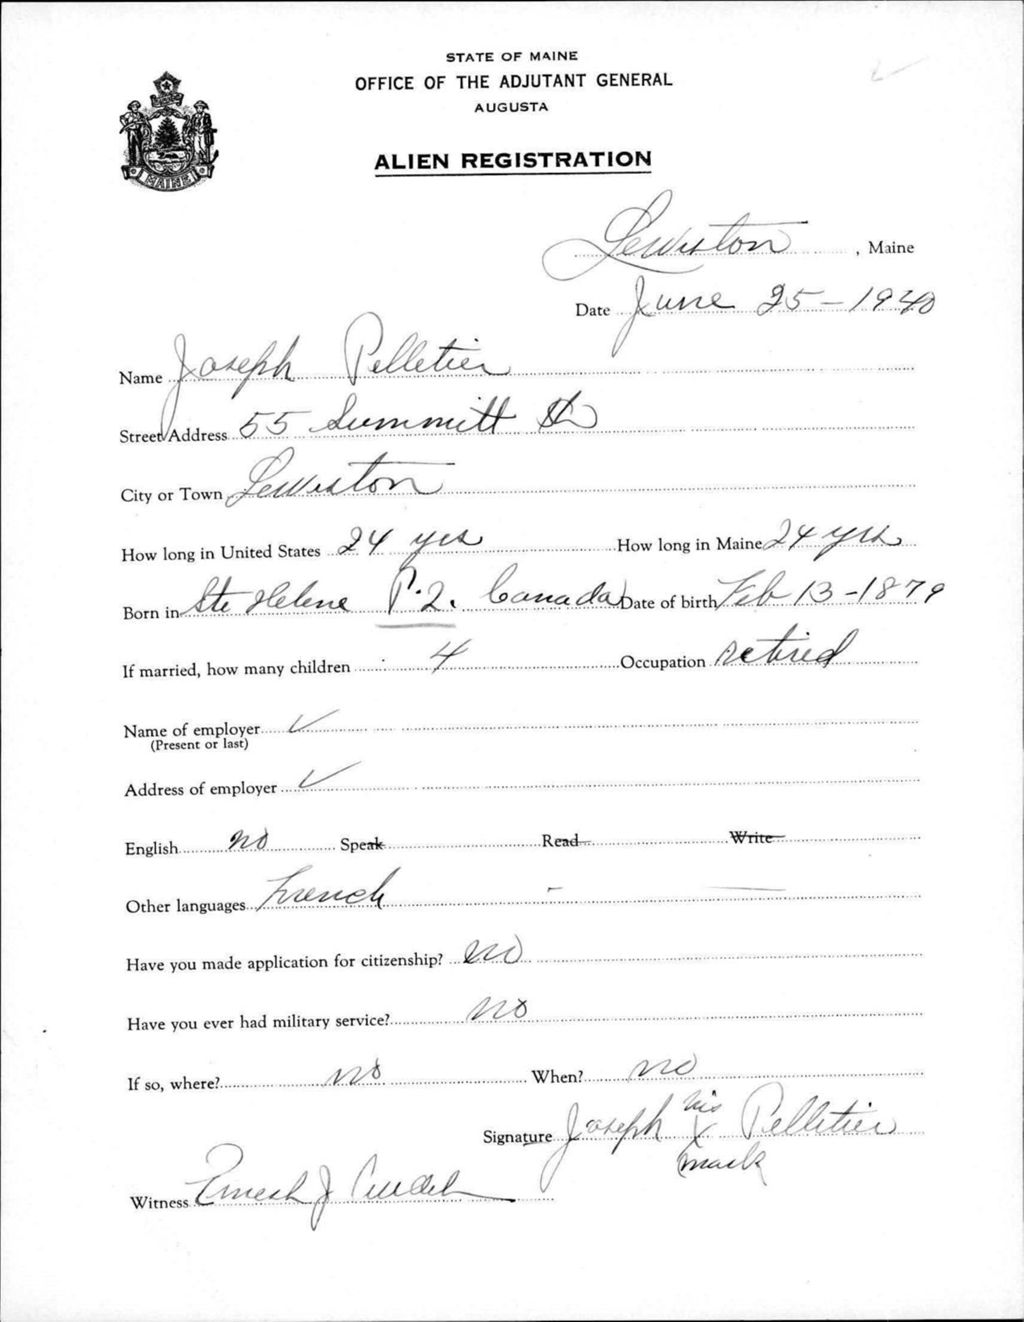 STATE OF MAINE
OFFICE OF THE ADJUTANT GENERAL
AUGUSTA
MAINE
ALIEN REGISTRATION
Lewiston, Maine
Date June 25-1940
Name Joseph Pelletier
Street Address 55 Summitt St
City or Town Lewiston
How long in United States 24 yrs How long in Maine 24 yrs
Born in Ste Helene P.Q. Canada Date of birth Feb 13-1879
If married, how many children 4 Occupation retired
Name of employer ✓
(Present or last)
Address of employer ✓
English no Speak Read Write
Other languages French - —
Have you made application for citizenship? no
Have you ever had military service? no
If so, where? no When? no
Signature Joseph his X Pelletier
mark
Witness J